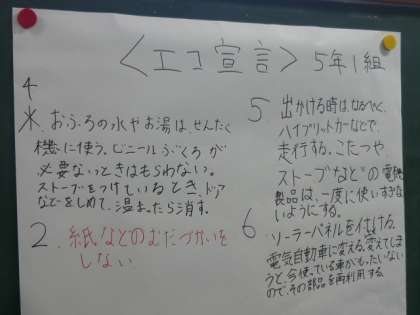 ＜エコ宣言＞ 5年1組
4
水、おふろの水やお湯は、せんたく
機に使う。ビニールぶくろが
必要ないときはもらわない。
ストーブをつけているとき、ドア
などをしめて、温まったら消す。
2. 紙などのむだづかいを
しない
5 出かける時は、なるべく、
ハイブリットカーなどで、
走行する。こたつや
ストーブなどの電気
製品は、一度に使いすぎな
いようにする。
6 ソーラーパネルを付ける。
電気自動車に変える。変えてしま
うと、今使っている車がもったいない
ので、その部品を再利用する